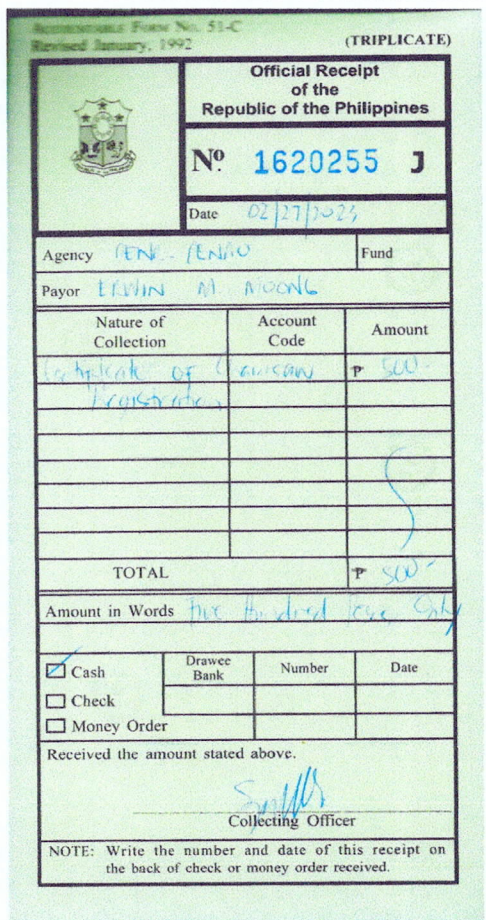 Accountable Form No. 51-C
Revised January, 1992
(TRIPLICATE)
Official Receipt
of the
Republic of the Philippines
No. 1620255 J
Date 02/27/2023
Agency DENR - PENRO
Fund
Payor ERWIN M. MOONG
Nature of Collection
Account Code
Amount
Certificate of Chainsaw ₱ 500-
Registration
TOTAL ₱ 500-
Amount in Words Five Hundred Pesos Only
Cash
Drawee Bank
Number
Date
Check
Money Order
Received the amount stated above.
Collecting Officer
NOTE: Write the number and date of this receipt on
the back of check or money order received.